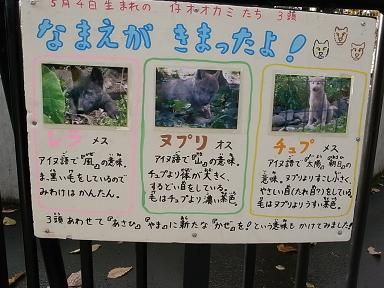 5月4日生まれの 仔オオカミたち 3頭
なまえが きまったよ!
レラ メス
アイヌ語で『風』の意味。
ま、黒い毛をしているので
みわけはかんたん。
ヌプリ オス
アイヌ語で『山』の意味。
チュプより体が大きく、
するどい目をしている。
毛はチュプより濃い茶色
チュプ メス
アイヌ語で『太陽』『朝日』の
意味。ヌプリよりすこし小さく、
やさしい目(たれ目)をしている。
毛はヌプリよりうすい茶色。
3頭あわせて『あさひ』『やま』に新たな『かぜ』を!という意味もかけてみました!